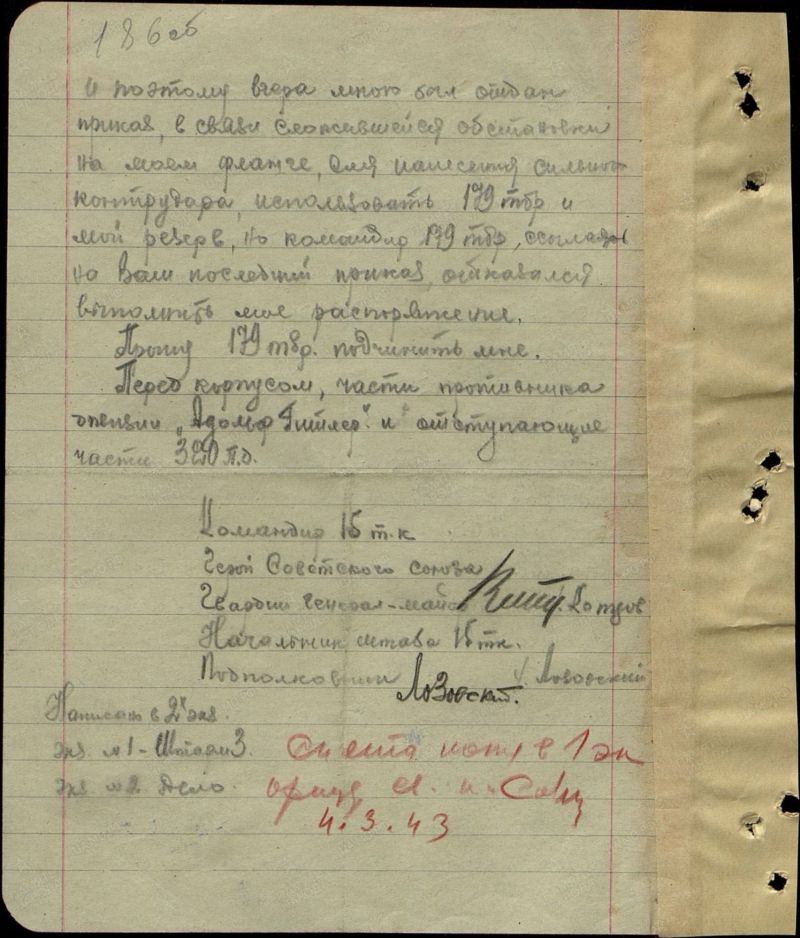 186об
И поэтому вчера мною был отдан
приказ, в связи сложившейся обстановки
на моем фланге, для нанесения сильного
контрудара, использовать 179 тбр и
мой резерв, но командир 179 тбр, ссылаясь
на Ваш последний приказ, отказался
выполнить мое распоряжение.
Прошу 179 тбр. подчинить мне.
Перед корпусом, части противника
дивизии „Адольф Гитлер" и отступающие
части 320 п.д.
Командир 15 т.к
Герой Советского союза
Гвардии генерал-майор Копцов
Начальник штаба 15 тк.
Подполковник Лозовский
Лозовский.
Написано в 2х экз.
экз. №1 - Штарм 3.
экз №2. Дело.
Снята копия в 1 эк
4.3.43